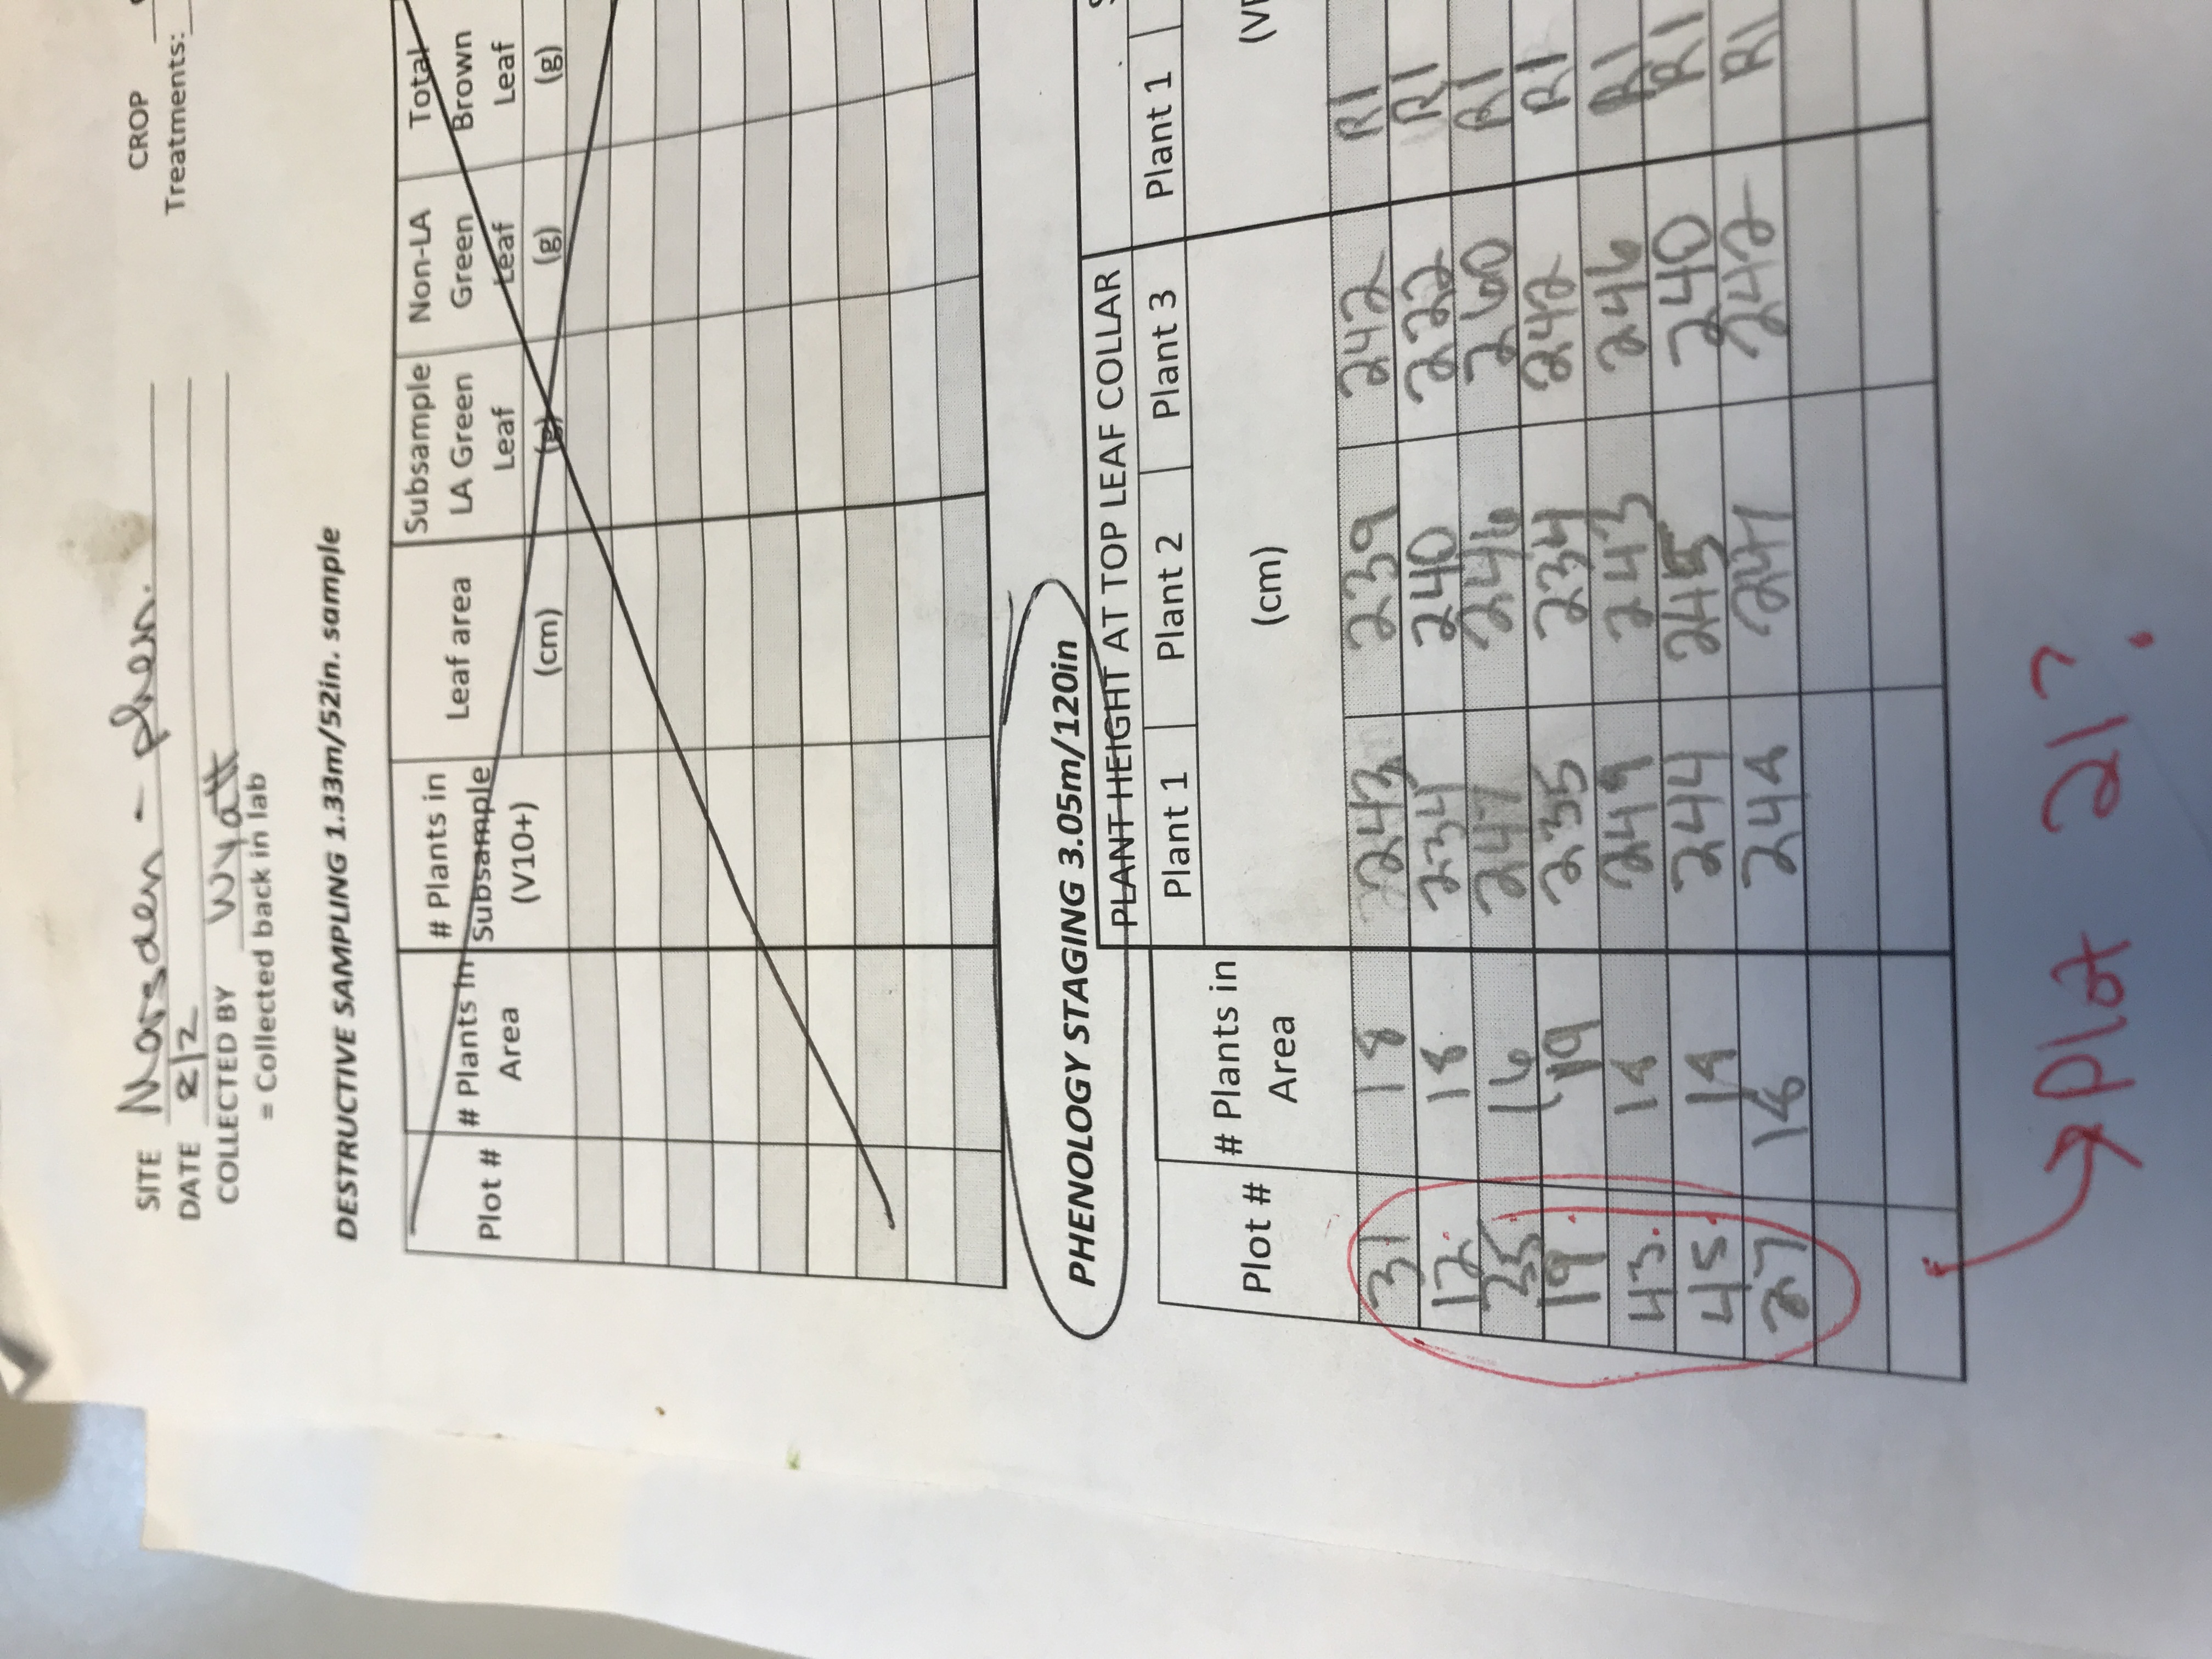 SITE Marsden - phen.
CROP
DATE 8/2
Treatments:
COLLECTED BY Wyatt
= Collected back in lab
DESTRUCTIVE SAMPLING 1.33m/52in. sample
Plot # # Plants in Area # Plants in Subsample (V10+) Leaf area (cm) Subsample LA Green Leaf (g) Non-LA Green Leaf (g) Total Brown Leaf (g)
PHENOLOGY STAGING 3.05m/120in
PLANT HEIGHT AT TOP LEAF COLLAR
Plant 1 Plant 2 Plant 3 Plant 1
Plot # # Plants in Area (cm)
31 18 243 239 242 R1
12 18 234 240 222 R1
35 16 247 246 260 R1
19 19 235 234 242 R1
43 18 249 243 246 R1
45 244 245 240 R1
27 18 248 242 R1
Plot 21?